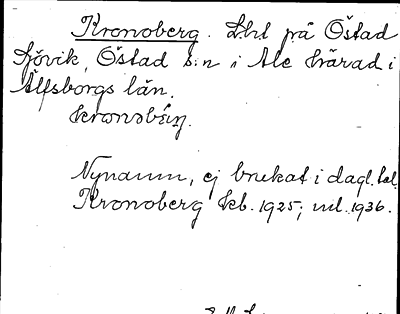 Kronoberg. Lht på Östad
Sjövik, Östad s:n i Ale härad i
Älfsborgs län.
Nynamn, ej brukat i dagl. tal.
Kronoberg kb. 1925; ml. 1936.